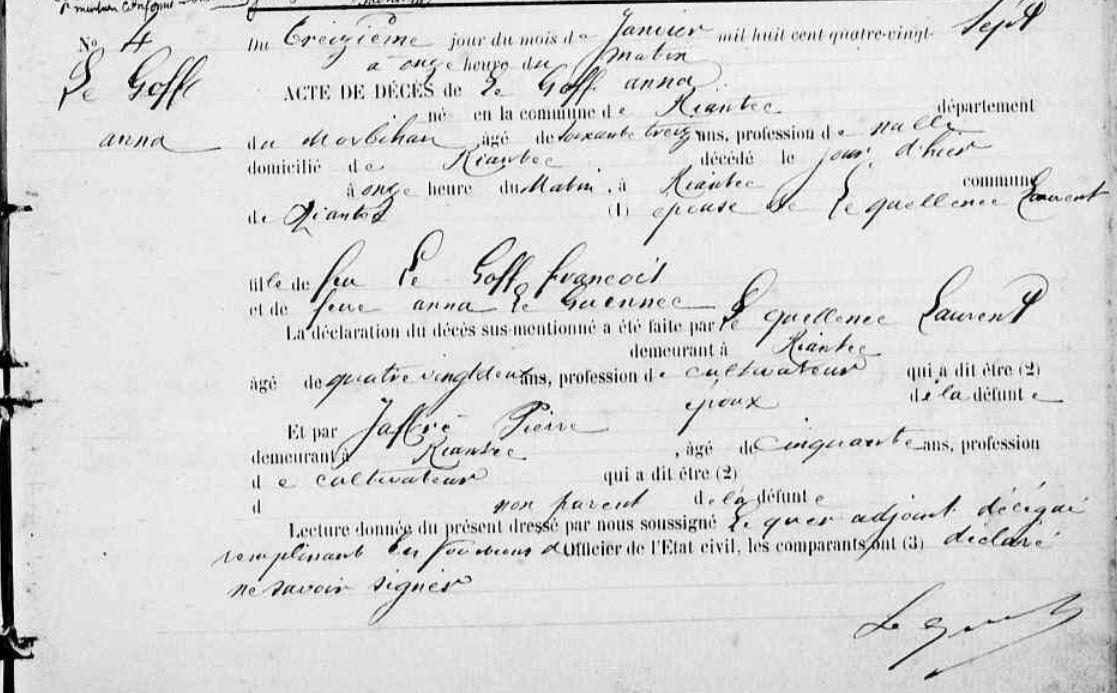 N° 4 Du treizième jour du mois de Janvier mil huit cent quatre-vingt- Sept
à onze heure du matin
Le Goff anna
ACTE DE DÉCÈS de Le Goff anna
née en la commune de Riantec département
du Morbihan âgé de soixante treize ans, profession de
domicilié de Riantec décédé le jour d'hier
à onze heure du Matin, à Riantec commune
de Riantec (1) épouse de Le quellenec Laurent
fille de feu Le Goff francois
et de feue anna Le Guennec
La déclaration du décès sus-mentionné a été faite par Le quellenec Laurent
demeurant à Riantec
âgé de quatre vingt deux ans, profession de cultivateur qui a dit être (2)
époux de la défunte
Et par Jaffré Pierre
demeurant à Riantec, âgé de cinquante ans, profession
de cultivateur qui a dit être (2)
d non parent de la défunte
Lecture donnée du présent dressé par nous soussigné Le quer adjoint délégué
remplissant les fonctions d'Officier de l'Etat civil, les comparants ont (3) déclaré
ne savoir signer
Le Quer